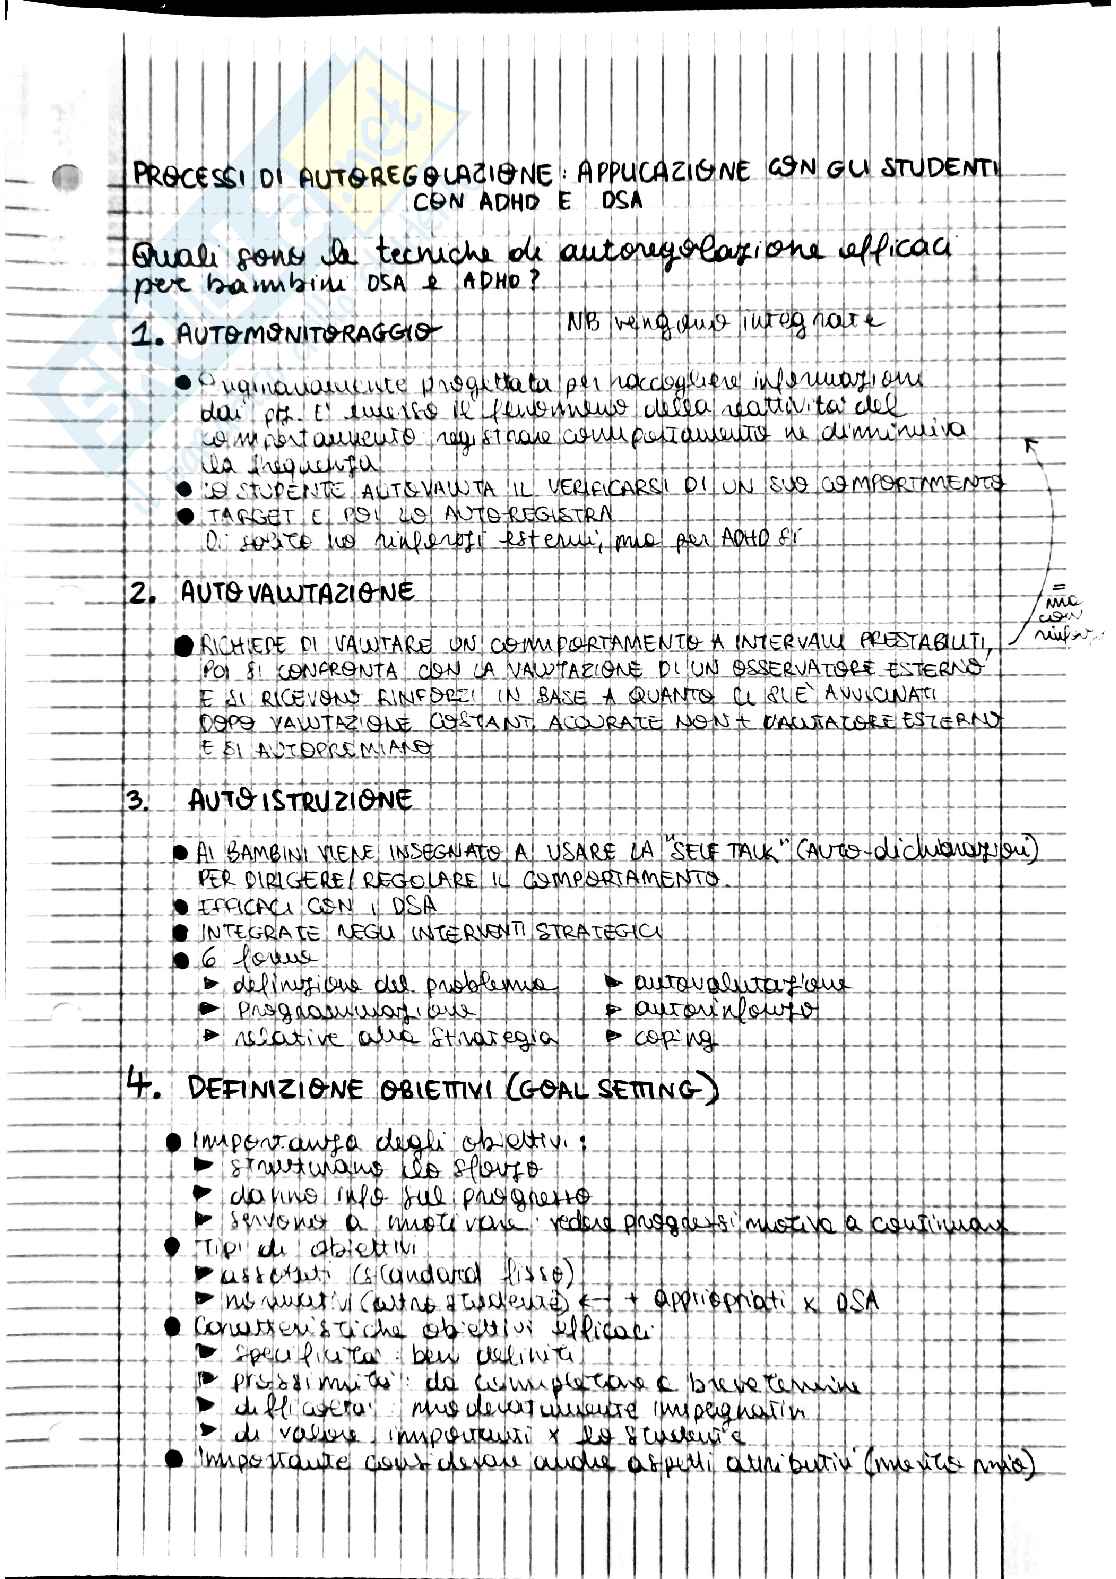 PROCESSI DI AUTOREGOLAZIONE: APPLICAZIONE CON GLI STUDENTI
CON ADHD E DSA
Quali sono le tecniche di autoregolazione efficaci
per bambini DSA e ADHD?
1. AUTOMONITORAGGIO
NB vengono integrate
● Originariamente progettata per raccogliere informazioni
dai pz. È emerso il fenomeno della reattività del
comportamento registrare comportamento ne diminuiva
la frequenza
● LO STUDENTE AUTOVALUTA IL VERIFICARSI DI UN SUO COMPORTAMENTO
● TARGET E POI LO AUTOREGISTRA
Di solito no rinforzi esterni, ma per ADHD sì
2. AUTOVALUTAZIONE
= ma
con
● RICHIEDE DI VALUTARE UN COMPORTAMENTO A INTERVALLI PRESTABILITI,
POI SI CONFRONTA CON LA VALUTAZIONE DI UN OSSERVATORE ESTERNO
E SI RICEVONO RINFORZI IN BASE A QUANTO CI SI È AVVICINATI
DOPO VALUTAZIONE COSTANTI, ACCURATE NON + VALUTATORE ESTERNO
E SI AUTOPREMIANO
3. AUTOISTRUZIONE
● AI BAMBINI VIENE INSEGNATO A USARE LA "SELF TALK" (AUTO-dichiarazioni)
PER DIRIGERE/REGOLARE IL COMPORTAMENTO.
● EFFICACI CON I DSA
● INTEGRATE NEGLI INTERVENTI STRATEGICI
● 6 forme
► definizione del problema ► autovalutazione
► programmazione ► autorinforzo
► relative alla strategia ► coping
4. DEFINIZIONE OBIETTIVI (GOAL SETTING)
● Importanza degli obiettivi:
► strutturano lo sforzo
► danno info sul progresso
► servono a motivare: vedere progressi motiva a continuare
● Tipi di obiettivi
► assoluti (standard fisso)
► normativi (altro studente) ← + appropriati x DSA
● Caratteristiche obiettivi efficaci
► specificità: ben definiti
► prossimità: da completare a breve termine
► difficoltà: moderatamente impegnativi
► di valore: importanti x lo studente
● Importante considerare anche aspetti attributivi (merito mio)